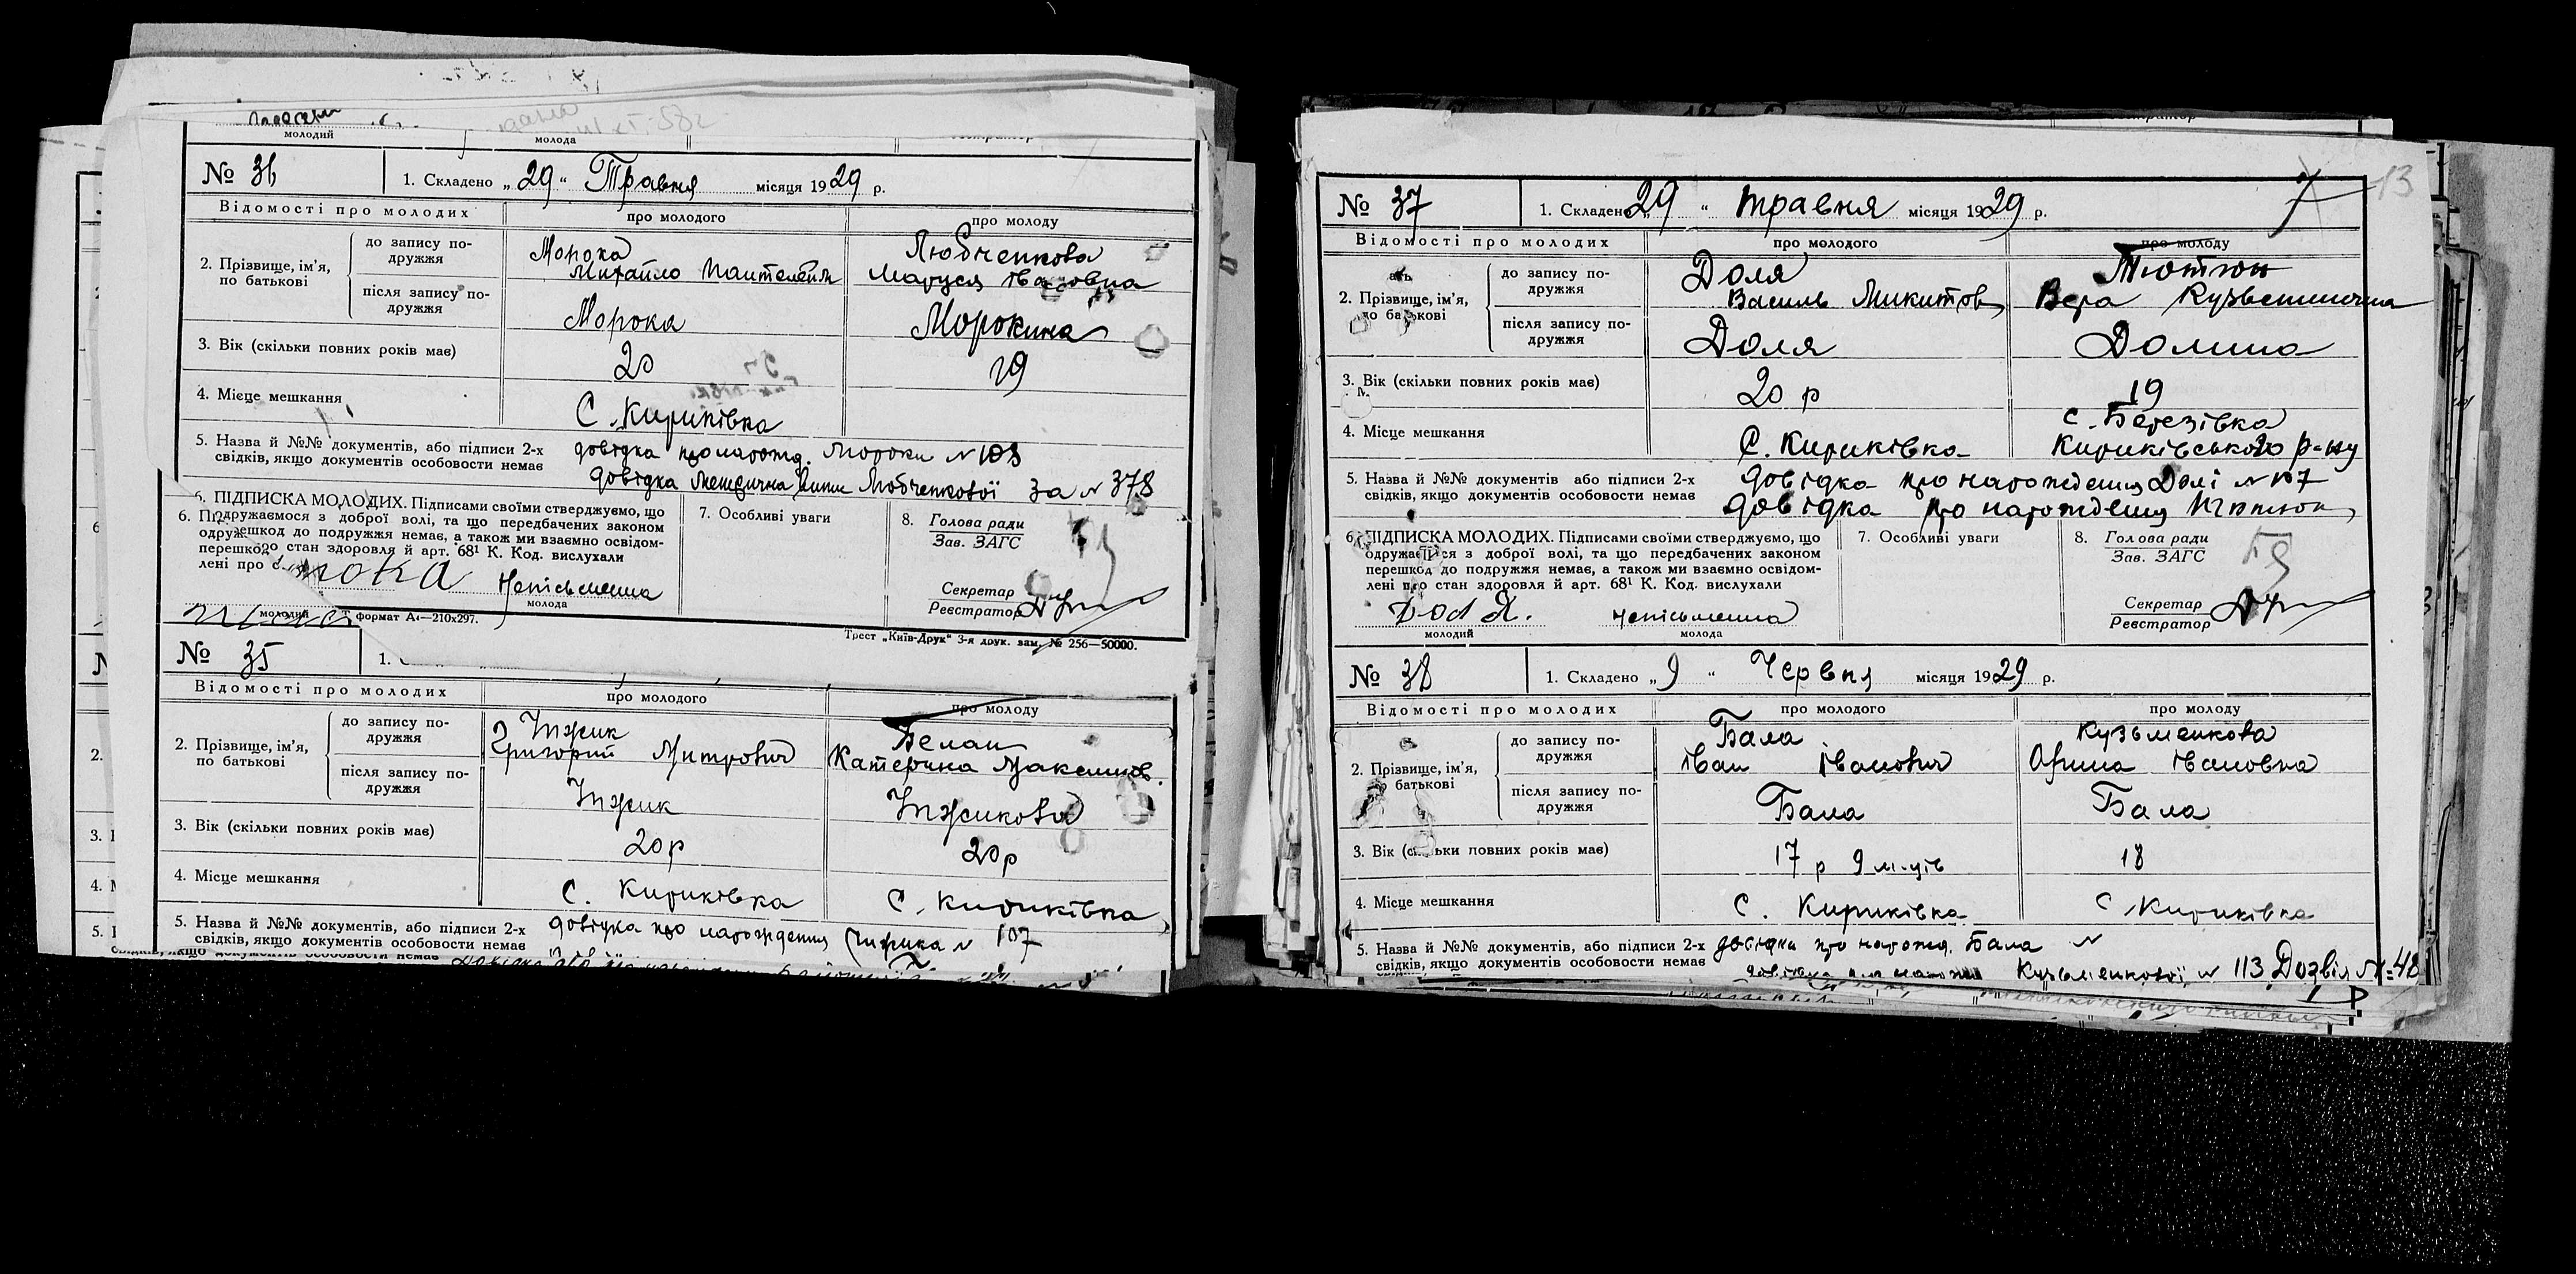 молодий молода
№ 36 1. Складено „ 29 “ Травня місяця 1929 р.
Відомості про молодих про молодого про молоду
2. Прізвище, ім’я, по батькові
до запису по-дружжя
Морока Любченкова
Михайло Маруся Івановна
після запису по-дружжя
Морока Морокина
3. Вік (скільки повних років має) 20 19
4. Місце мешкання С. Кириківка
5. Назва й №№ документів, або підписи 2-х довідка Мороки № 108
свідків, якщо документів особовости немає довідка Любченкової за № 378
6. ПІДПИСКА МОЛОДИХ. Підписами своїми стверджуємо, що
одружаємося з доброї волі, та що передбачених законом
перешкод до подружжя немає, а також ми взаємно освідом-
лені про стан здоровля й арт. 68¹ К. Код. вислухали
7. Особливі уваги
8. Голова ради
Зав. ЗАГС
Секретар
Реєстратор
неписьменна
молодий молода
формат А₄—210х297.
Трест „Київ-Друк“ 3-я друк. зам. № 256—50000.
№ 35 1.
Відомості про молодих про молодого про молоду
2. Прізвище, ім’я, по батькові
до запису по-дружжя
Чижик Белан
Григорий Митрович Катерина Максимов.
після запису по-дружжя
Чижик Чижикова
3. Вік (скільки повних років має) 20р 20р
4. Місце мешкання С. Кириківка С. Кириківка
5. Назва й №№ документів, або підписи 2-х довідка про народження Чижика № 107
свідків, якщо документів особовости немає
13
7
№ 37 1. Складено „ 29 “ травня місяця 1929 р.
Відомості про молодих про молодого про молоду
2. Прізвище, ім’я, по батькові
до запису по-дружжя
Доля Тютюн
Василь Микитов Вера Кузьминична
після запису по-дружжя
Доля Долина
3. Вік (скільки повних років має) 20 р 19
4. Місце мешкання С. Кириківка с. Березівка
Кириківського р-ну
5. Назва й №№ документів або підписи 2-х довідка про народження Долі № 107
свідків, якщо документів особовости немає довідка про народження Тютюн
6. ПІДПИСКА МОЛОДИХ. Підписами своїми стверджуємо, що
одружаємося з доброї волі, та що передбачених законом
перешкод до подружжя немає, а також ми взаємно освідом-
лені про стан здоровля й арт. 68¹ К. Код. вислухали
Доля. неписьменна
молодий молода
7. Особливі уваги
8. Голова ради
Зав. ЗАГС
Секретар
Реєстратор
№ 38 1. Складено „ 9 “ Червня місяця 1929 р.
Відомості про молодих про молодого про молоду
2. Прізвище, ім’я, по батькові
до запису по-дружжя
Бала Кузьменкова
Іван Іванович Орина Івановна
після запису по-дружжя
Бала Бала
3. Вік (скільки повних років має) 17 р 9 м-ців 18
4. Місце мешкання С. Кириківка С. Кириківка
5. Назва й №№ документів, або підписи 2-х довідка про народж. Бала №
свідків, якщо документів особовости немає Кузьменкової № 113 Дозвіл № 48